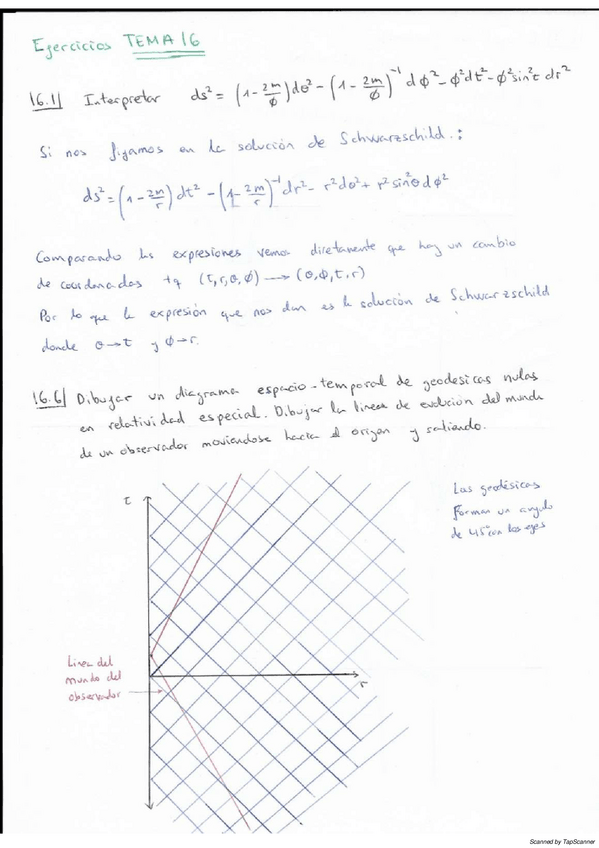 Ejercicios TEMA 16
16.1| Interpretar ds² = (1 - 2m/φ)dθ² - (1 - 2m/φ)⁻¹ dφ² - φ²dt² - φ²sin²t dr²
Si nos fijamos en la solución de Schwarzschild.:
ds² = (1 - 2m/r) dt² - (1 - 2m/r)⁻¹ dr² - r²dθ² + r²sin²θ dφ²
Comparando las expresiones vemos diretanente que hay un cambio
de coordenadas tq (t,r,θ,φ) → (θ,φ,t,r)
Por lo que la expresión que nos dan es la solución de Schwarzschild
donde θ→t y φ→r.
16.6| Dibujar un diagrama espacio-temporal de geodesicas nulas
en relatividad especial. Dibujar la linea de evolución del mundo
de un observador moviendose hacia el origen y saliendo.
Las geodésicas
forman un angulo
de 45° con los ejes
t
Linea del
mundo del
observador
r
Scanned by TapScanner